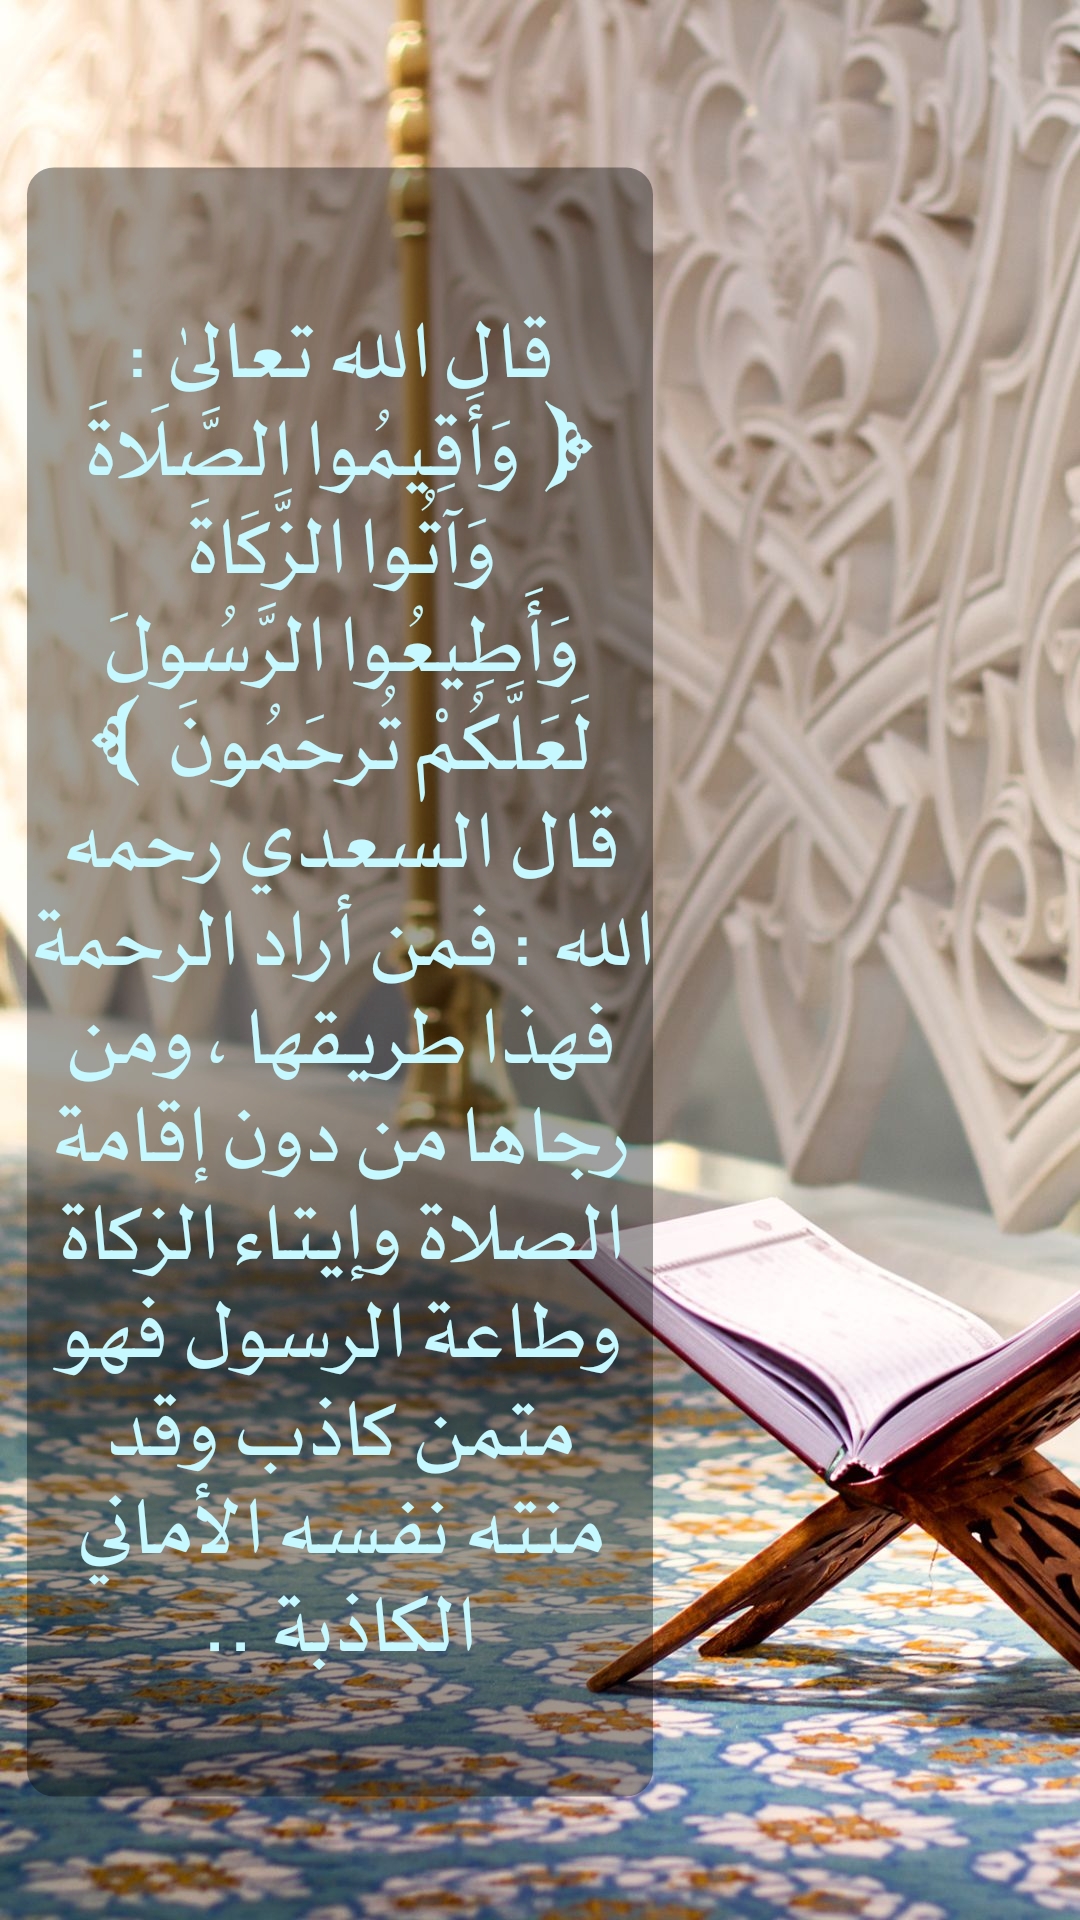 قال الله تعالىٰ :
﴿ وَأَقِيمُوا الصَّلَاةَ
وَآتُوا الزَّكَاةَ
وَأَطِيعُوا الرَّسُولَ
لَعَلَّكُمْ تُرحَمُونَ ﴾
قال السعدي رحمه
الله : فمن أراد الرحمة
فهذا طريقها ، ومن
رجاها من دون إقامة
الصلاة وإيتاء الزكاة
وطاعة الرسول فهو
متمن كاذب وقد
منته نفسه الأماني
الكاذبة ..